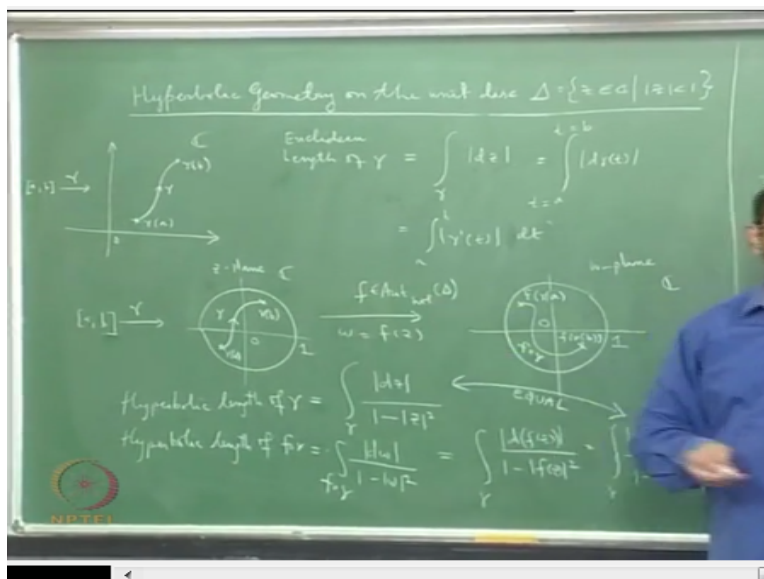 Hyperbolic Geometry on the unit disc Δ = {z ∈ ℂ | |z| < 1}
[a, b] —γ→
ℂ
γ(b)
γ
γ(a)
0
Euclidean
Length of γ = ∫_γ |dz| = ∫_{t=a}^{t=b} |dγ(t)|
= ∫_a^b |γ'(t)| dt
z-plane ℂ
w-plane
ℂ
[a, b] —γ→
γ
γ(b)
γ(a)
0
1
f ∈ Aut_hol(Δ)
w = f(z)
f(γ(a))
0
f(γ(b))
f∘γ
1
EQUAL
Hyperbolic length of γ = ∫_γ |dz| / 1 - |z|²
Hyperbolic length of f∘γ = ∫_{f∘γ} |dw| / 1 - |w|² = ∫_γ |d(f(z))| / 1 - |f(z)|² = ∫_γ
NPTEL